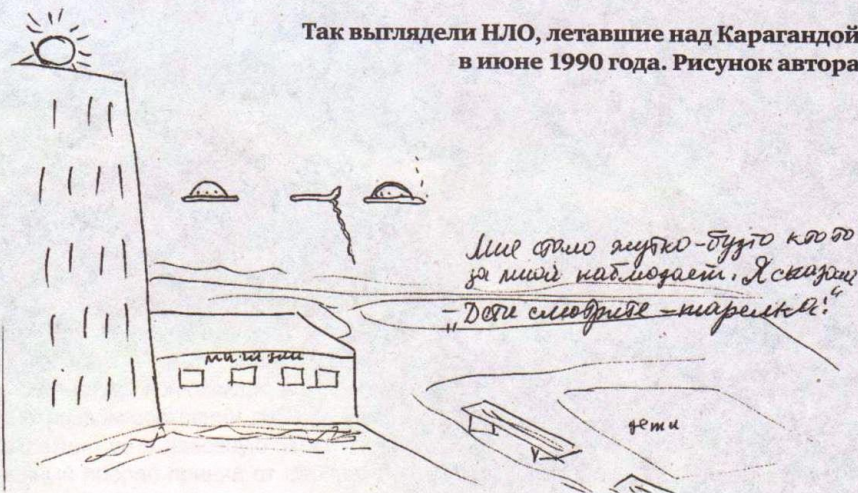 Так выглядели НЛО, летавшие над Карагандой
в июне 1990 года. Рисунок автора
Мне стало жутко - будто кто то
за мной наблюдает. Я сказала
- „Дети смотрите - тарелка!“
магазин
дети